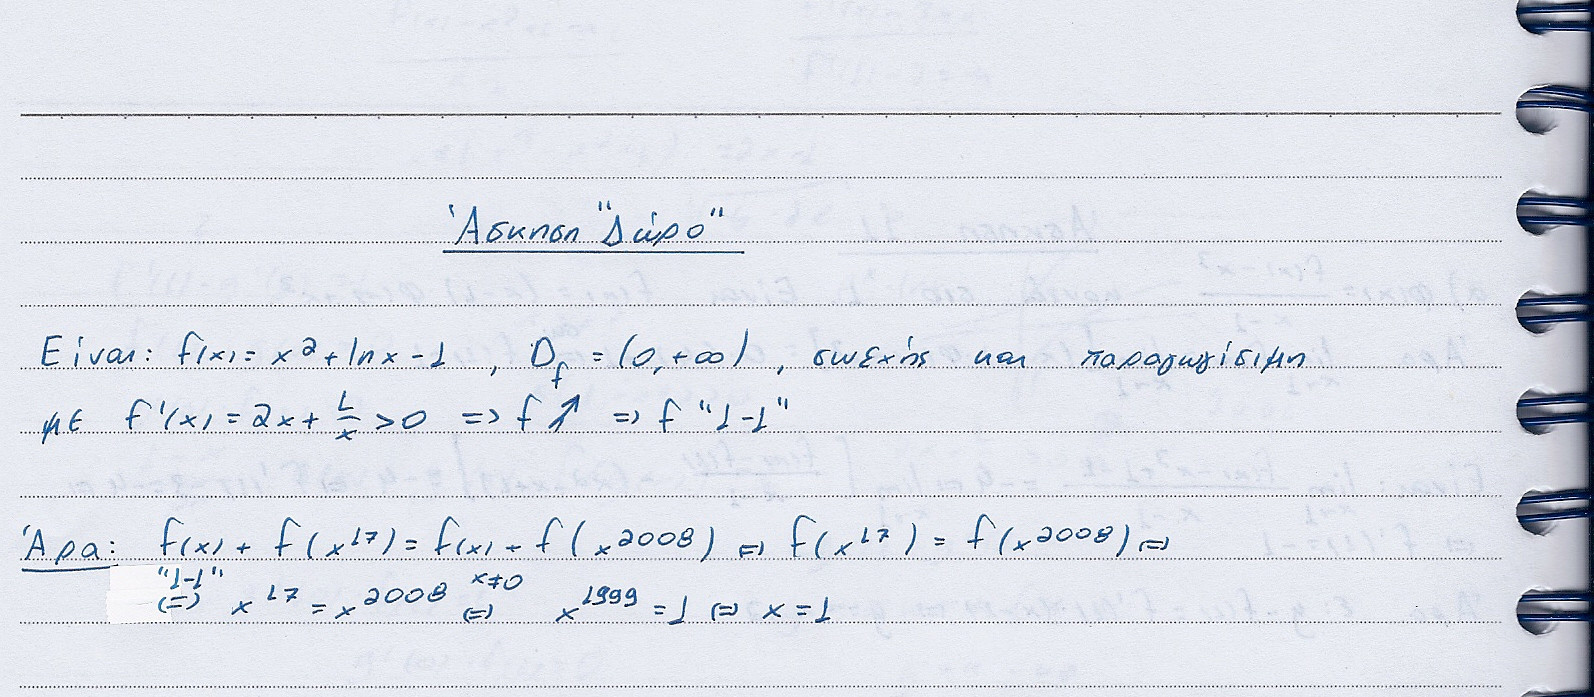 'Άσκηση "Δώρο"
Είναι: f(x) = x² + lnx - 1 , D_f = (0, +∞) , συνεχής και παραγωγίσιμη
με f'(x) = 2x + 1/x > 0 => f ↗ => f "1-1"
Άρα: f(x) + f(x¹⁷) = f(x) + f(x²⁰⁰⁸) <=> f(x¹⁷) = f(x²⁰⁰⁸) <=>
"1-1" <=> x¹⁷ = x²⁰⁰⁸ x≠0 <=> x¹⁹⁹⁹ = 1 <=> x = 1